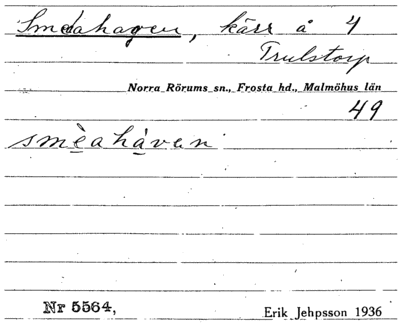 Smedahagen, kärr å 4
Trulstorp
Norra Rörums sn., Frosta hd., Malmöhus län
49
smèahávan
Nr 5564,
Erik Jehpsson 1936